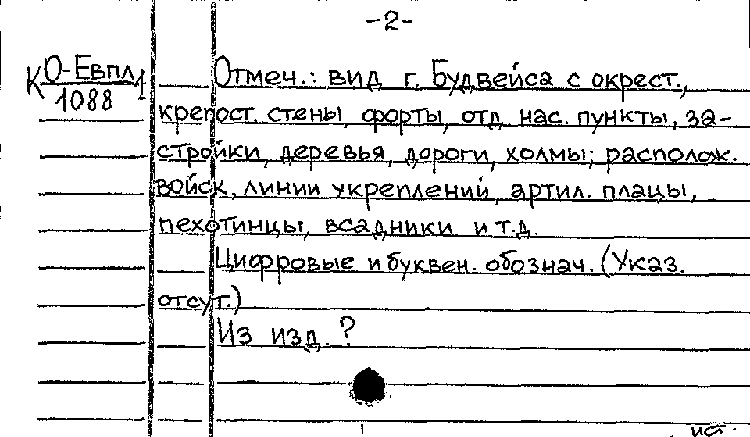 -2-
КО-Евпл 1
1088
Отмеч.: вид г. Будвейса с окрест.,
крепост. стены, форты, отд. нас. пункты, за-
стройки, деревья, дороги, холмы; располож.
войск, линии укреплений, артил. плацы,
пехотинцы, всадники и т.д.
Цифровые и буквен. обознач. (Указ.
отсут.)
Из изд. ?